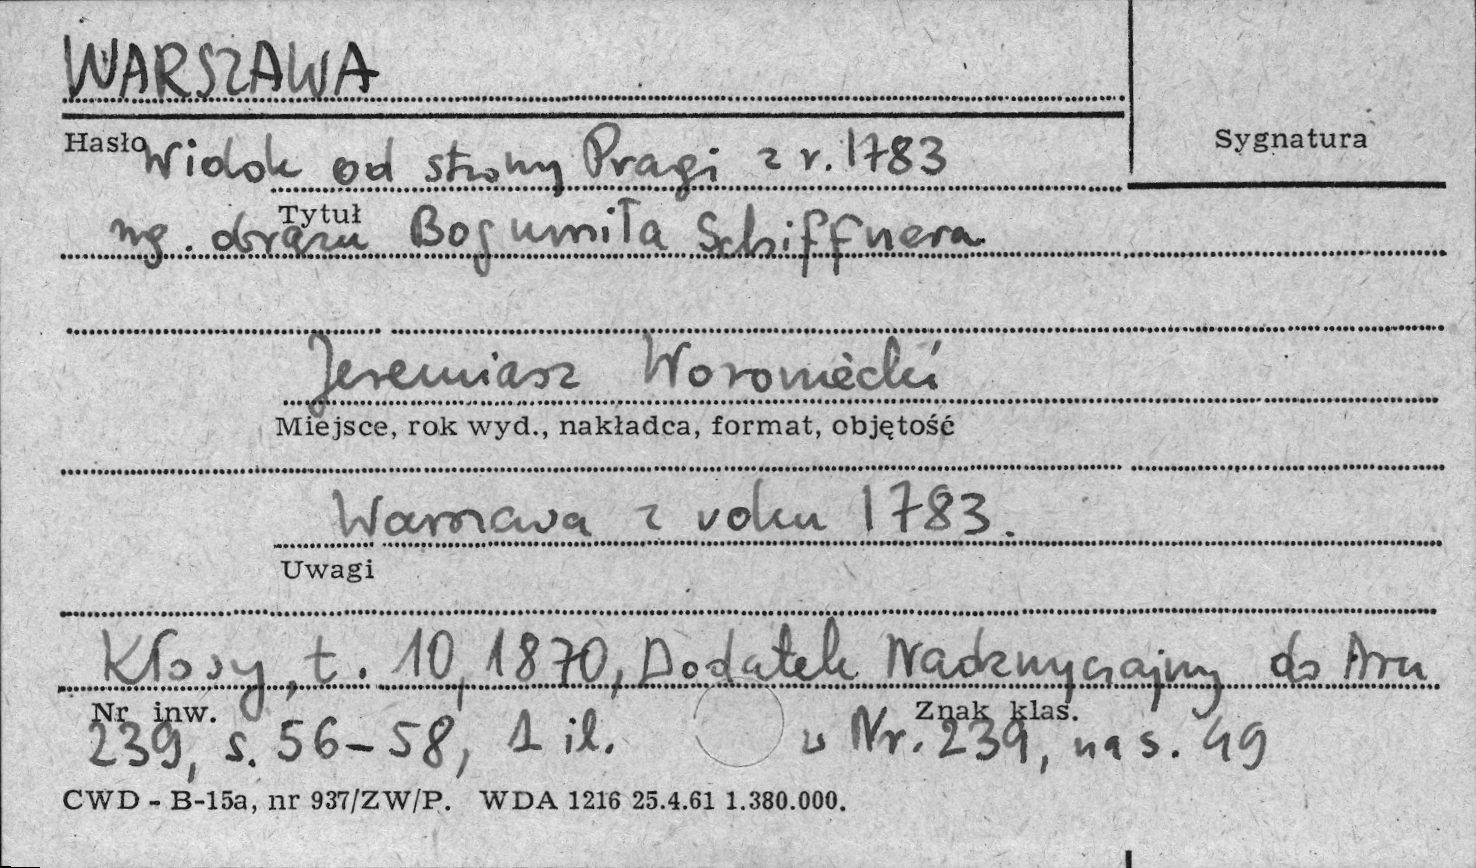 WARSZAWA
Hasło
Sygnatura
Widok od strony Pragi z r. 1783
Tytuł
wg. obrazu Bogumiła Schiffnera
Jeremiasz Woroniecki
Miejsce, rok wyd., nakładca, format, objętość
Warszawa z roku 1783.
Uwagi
Kłosy, t. 10, 1870, Dodatek Nadzwyczajny do Nru
Nr inw.
Znak klas.
239, s. 56-58, 1 il. w Nr. 239, na s. 49
CWD - B-15a, nr 937/ZW/P. WDA 1216 25.4.61 1.380.000.